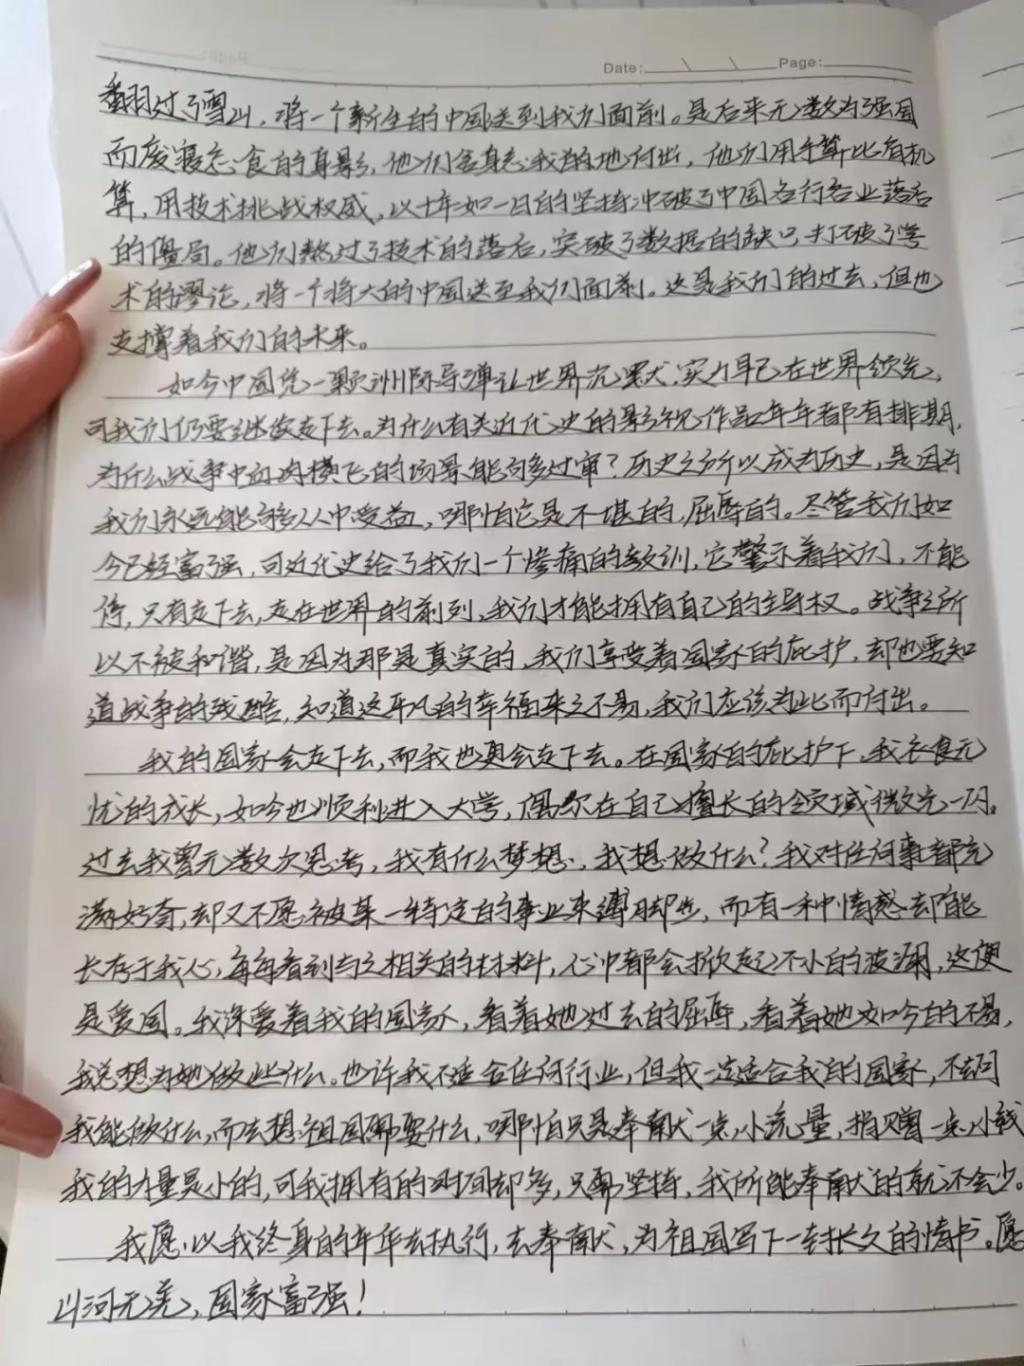 Date: Page:
翻过了雪山，将一个新生的中国送到我们面前。是后来无数为强国
而废寝忘食的身影，他们舍身忘我的地付出，他们用手算比肩机
算，用技术挑战权威，以十年如一日的坚持冲破了中国各行各业落后
的僵局。他们熬过了技术的落后，突破了数据的缺口，打破了学
术的谬论，将一个将大的中国送至我们面前。这是我们的过去，但也
支撑着我们的未来。
如今中国凭一颗洲际导弹让世界沉默，实力早已在世界领先，
可我们仍要继续走下去。为什么有关近代史的影视作品年年都有排期，
为什么战争中血肉横飞的场景能够多过审？历史之所以成为历史，是因为
我们永远能够从中受益，哪怕它是不堪的，屈辱的。尽管我们如
今已经富强，可近代史给了我们一个惨痛的教训，它警示着我们，不能
停，只有走下去，走在世界的前列，我们才能拥有自己的主导权。战争之所
以不被和谐，是因为那是真实的，我们享受着国家的庇护，却也要知
道战争的残酷，知道这平凡的幸福来之不易，我们应该为此而付出。
我的国家会走下去，而我也更会走下去。在国家的庇护下，我衣食无
忧的成长，如今也顺利进入大学，偶尔在自己擅长的领域微光一闪。
过去我曾无数次思考，我有什么梦想，我想做什么？我对任何事都充
满好奇，却又不愿被某一特定的事业束缚脚步，而有一种情感却能
长存于我心，每每看到与之相关的材料，心中都会掀起不小的波澜，这便
是爱国。我深爱着我的国家，看着她过去的屈辱，看着她如今的不易，
我总想为她做些什么。也许我不适合任何行业，但我一定适合我的国家，不去问
我能做什么，而去想祖国需要什么，哪怕只是奉献一点小流量，捐赠一点小钱
我的力量是小的，可我拥有的时间却多，只需坚持，我所能奉献的就不会少。
我愿以我终身的年华去执行，去奉献，为祖国写下一封长久的情书。愿
山河无恙，国家富强！